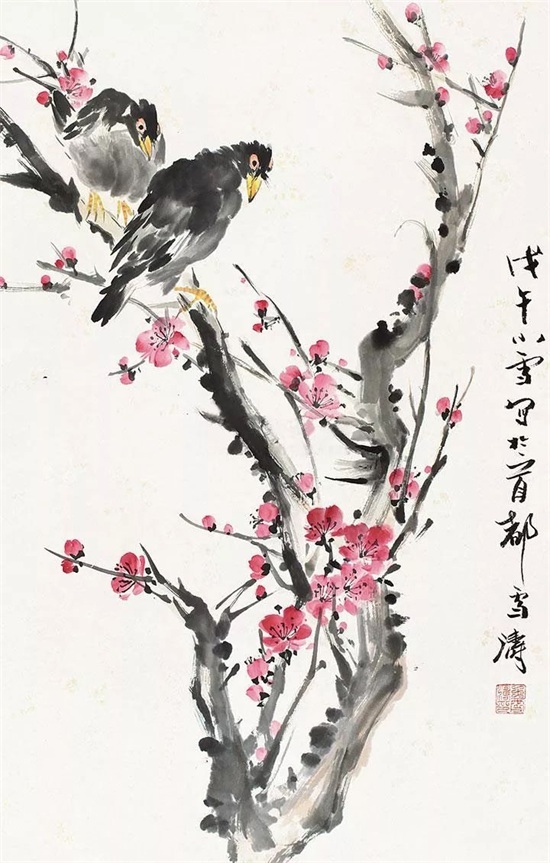 戊午小雪写于首都雪涛